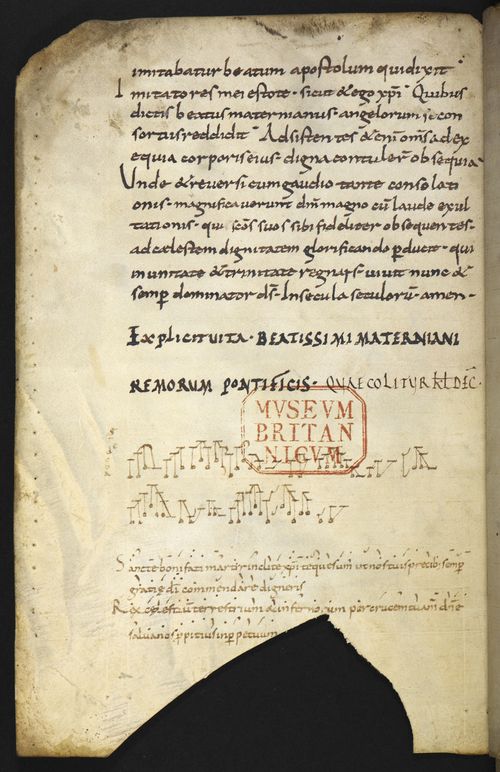 imitabatur beatum apostolum qui dixit
Imitatores mei estote · sicut & ego xp̄i · Quibus
dictis beatus maternianus · angelorum se con
sortius reddidit · Adsistentes & enī om̄s ad ex
equia corporis eius · digna contuler̄ obsequia
Unde & reversi cum gaudio tante consolati
onis · magnificaverunt dn̄m magno cū laude exul
tationis · qui sc̄os suos sibi fideliter obsequentes ·
ad cælestem dignitatem glorificando p̄ducit · qui
in unitate & trinitate regnans · vivit nunc &
semp̄ dominator d̄s · In secula seculorū · amen ·
Explicit vita · BEATISSIMI MATERNIANI
REMORUM PONTIFICIS · QUAE COLITUR KL DEC̄ ·
MVSEVM
BRITAN
NICVM
Sancte bonifati martir inclite xp̄i te quesum ut nos tuis precib; semp̄
gratie dī commendare digneris
Rex celestiū terrestrium & infernorum per crucem tuam dn̄e
salva nos p̄pitius in p̄petuum